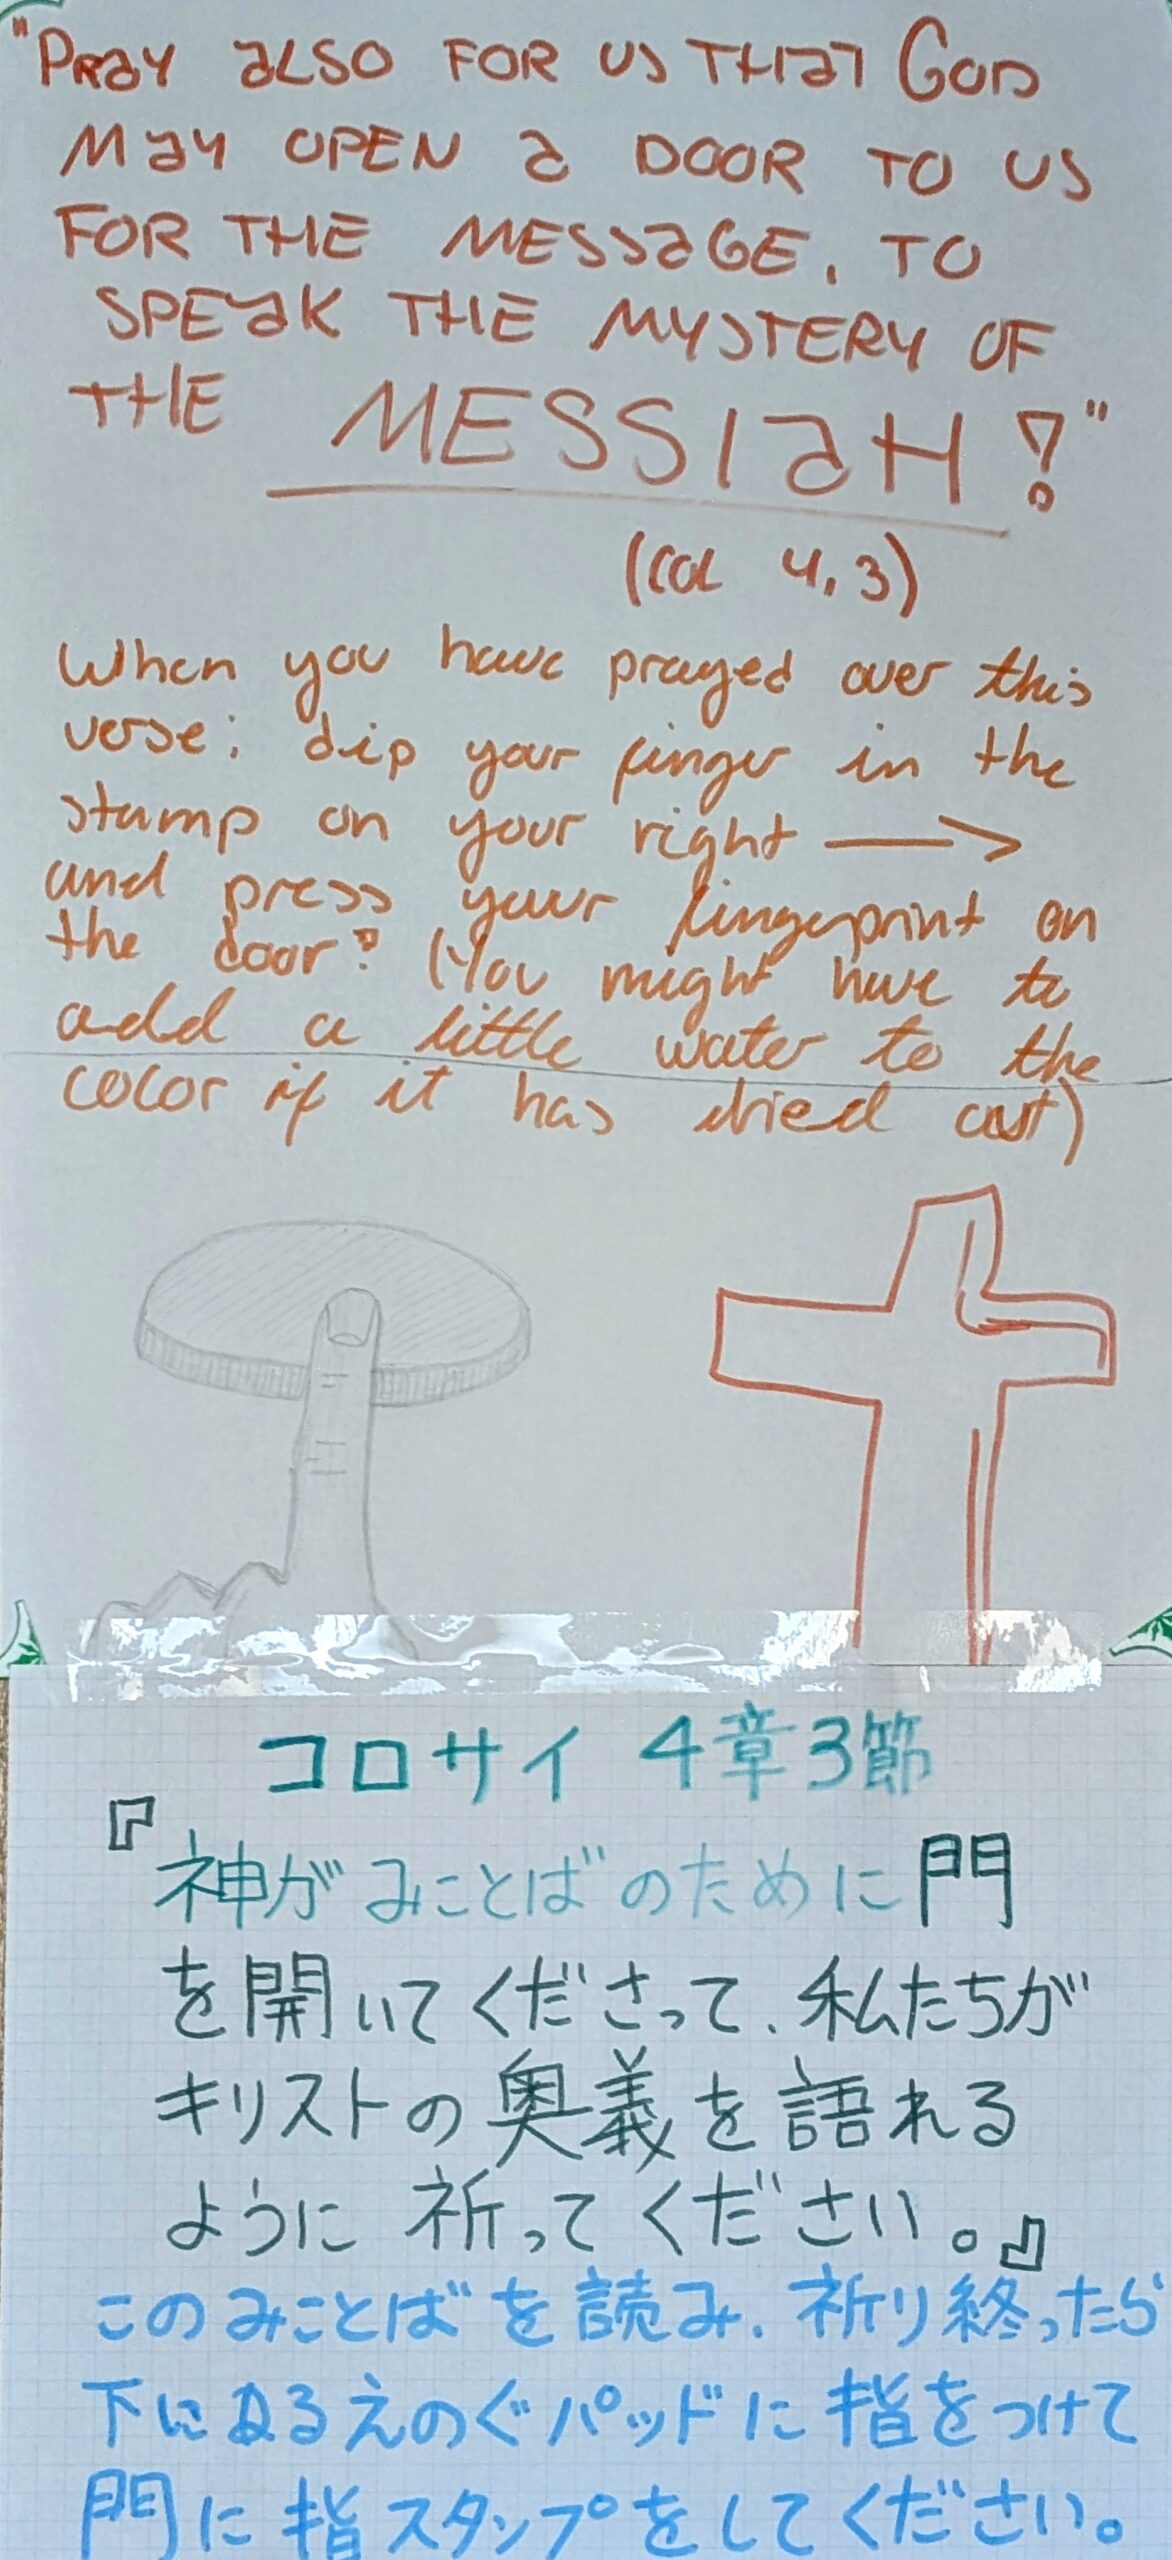 "Pray also for us that God
may open a door to us
for the message, to
speak the mystery of
the MESSIaH!"
(Col 4,3)
When you have prayed over this
verse: dip your finger in the
stamp on your right →
and press your fingerprint on
the door! (You might have to
add a little water to the
color if it has dried out)
コロサイ 4章3節
『神がみことばのために門
を開いてくださって、私たちが
キリストの奥義を語れる
ように祈ってください。』
このみことばを読み、祈り終ったら
下にあるえのぐパッドに指をつけて
門に指スタンプをしてください。